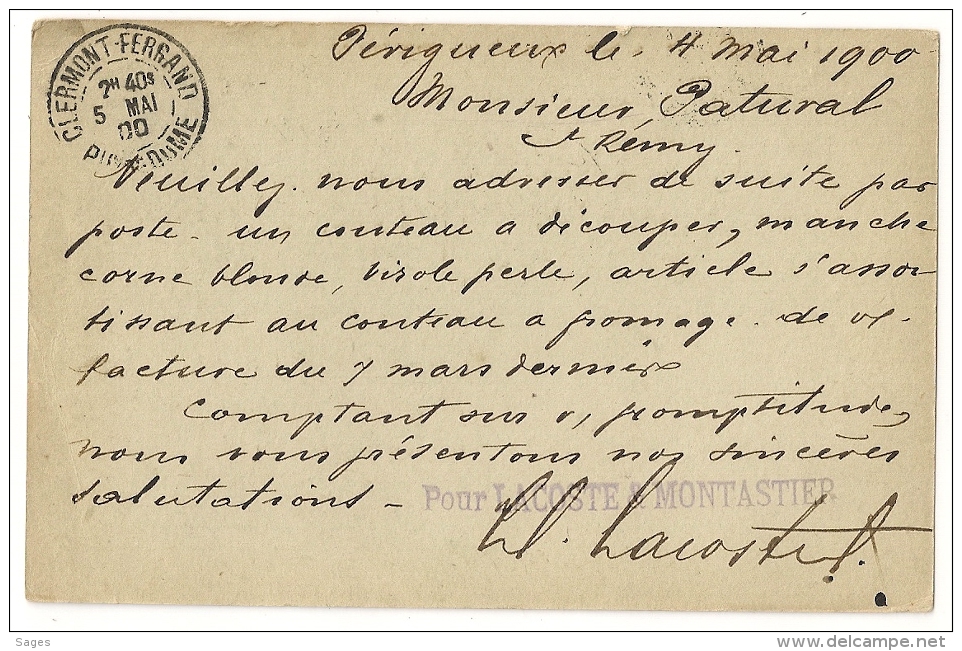 CLERMONT-FERRAND
2H 40S
5 MAI
00
PUY-DE-DOME
Périgueux le. 4 Mai 1900
Monsieur, Patural
St Rémy.
Veuillez nous adresser de suite par
poste - un couteau a découper, manche
corne blonde, virole perle, article s'assor
tissant au couteau a fromage. de v/.
facture du 7 mars dernier
Comptant sur v/ promptitude,
nous vous présentons nos sincères
salutations -
Pour LACOSTE & MONTASTIER
Lacoste
Sages
http://www.delcampe.net